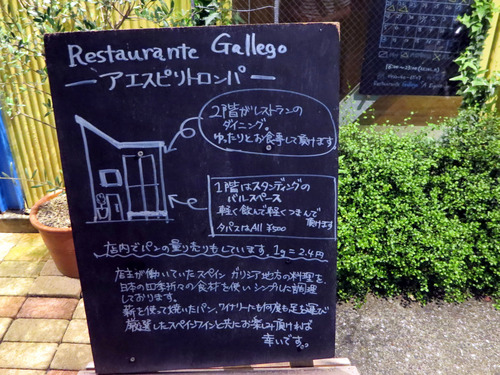 Restaurante Gallego
ーアエスピリトロンパー
2階がレストランの
ダイニング。
ゆったりとお食事して頂けます
1階はスタンディングの
バルスペース
軽く飲んで軽くつまんで
頂けます
タパスはAll ¥500
店内でパンの量り売りもしています。1g=2.4円
店主が働いていたスペイン ガリシア地方の料理を、
日本の四季折々の食材を使いシンプルに調理
しております。
薪を使って焼いたパン、ワイナリーにも何度も足を運び
厳選したスペインワインと共にお楽しみ頂ければ
幸いです。